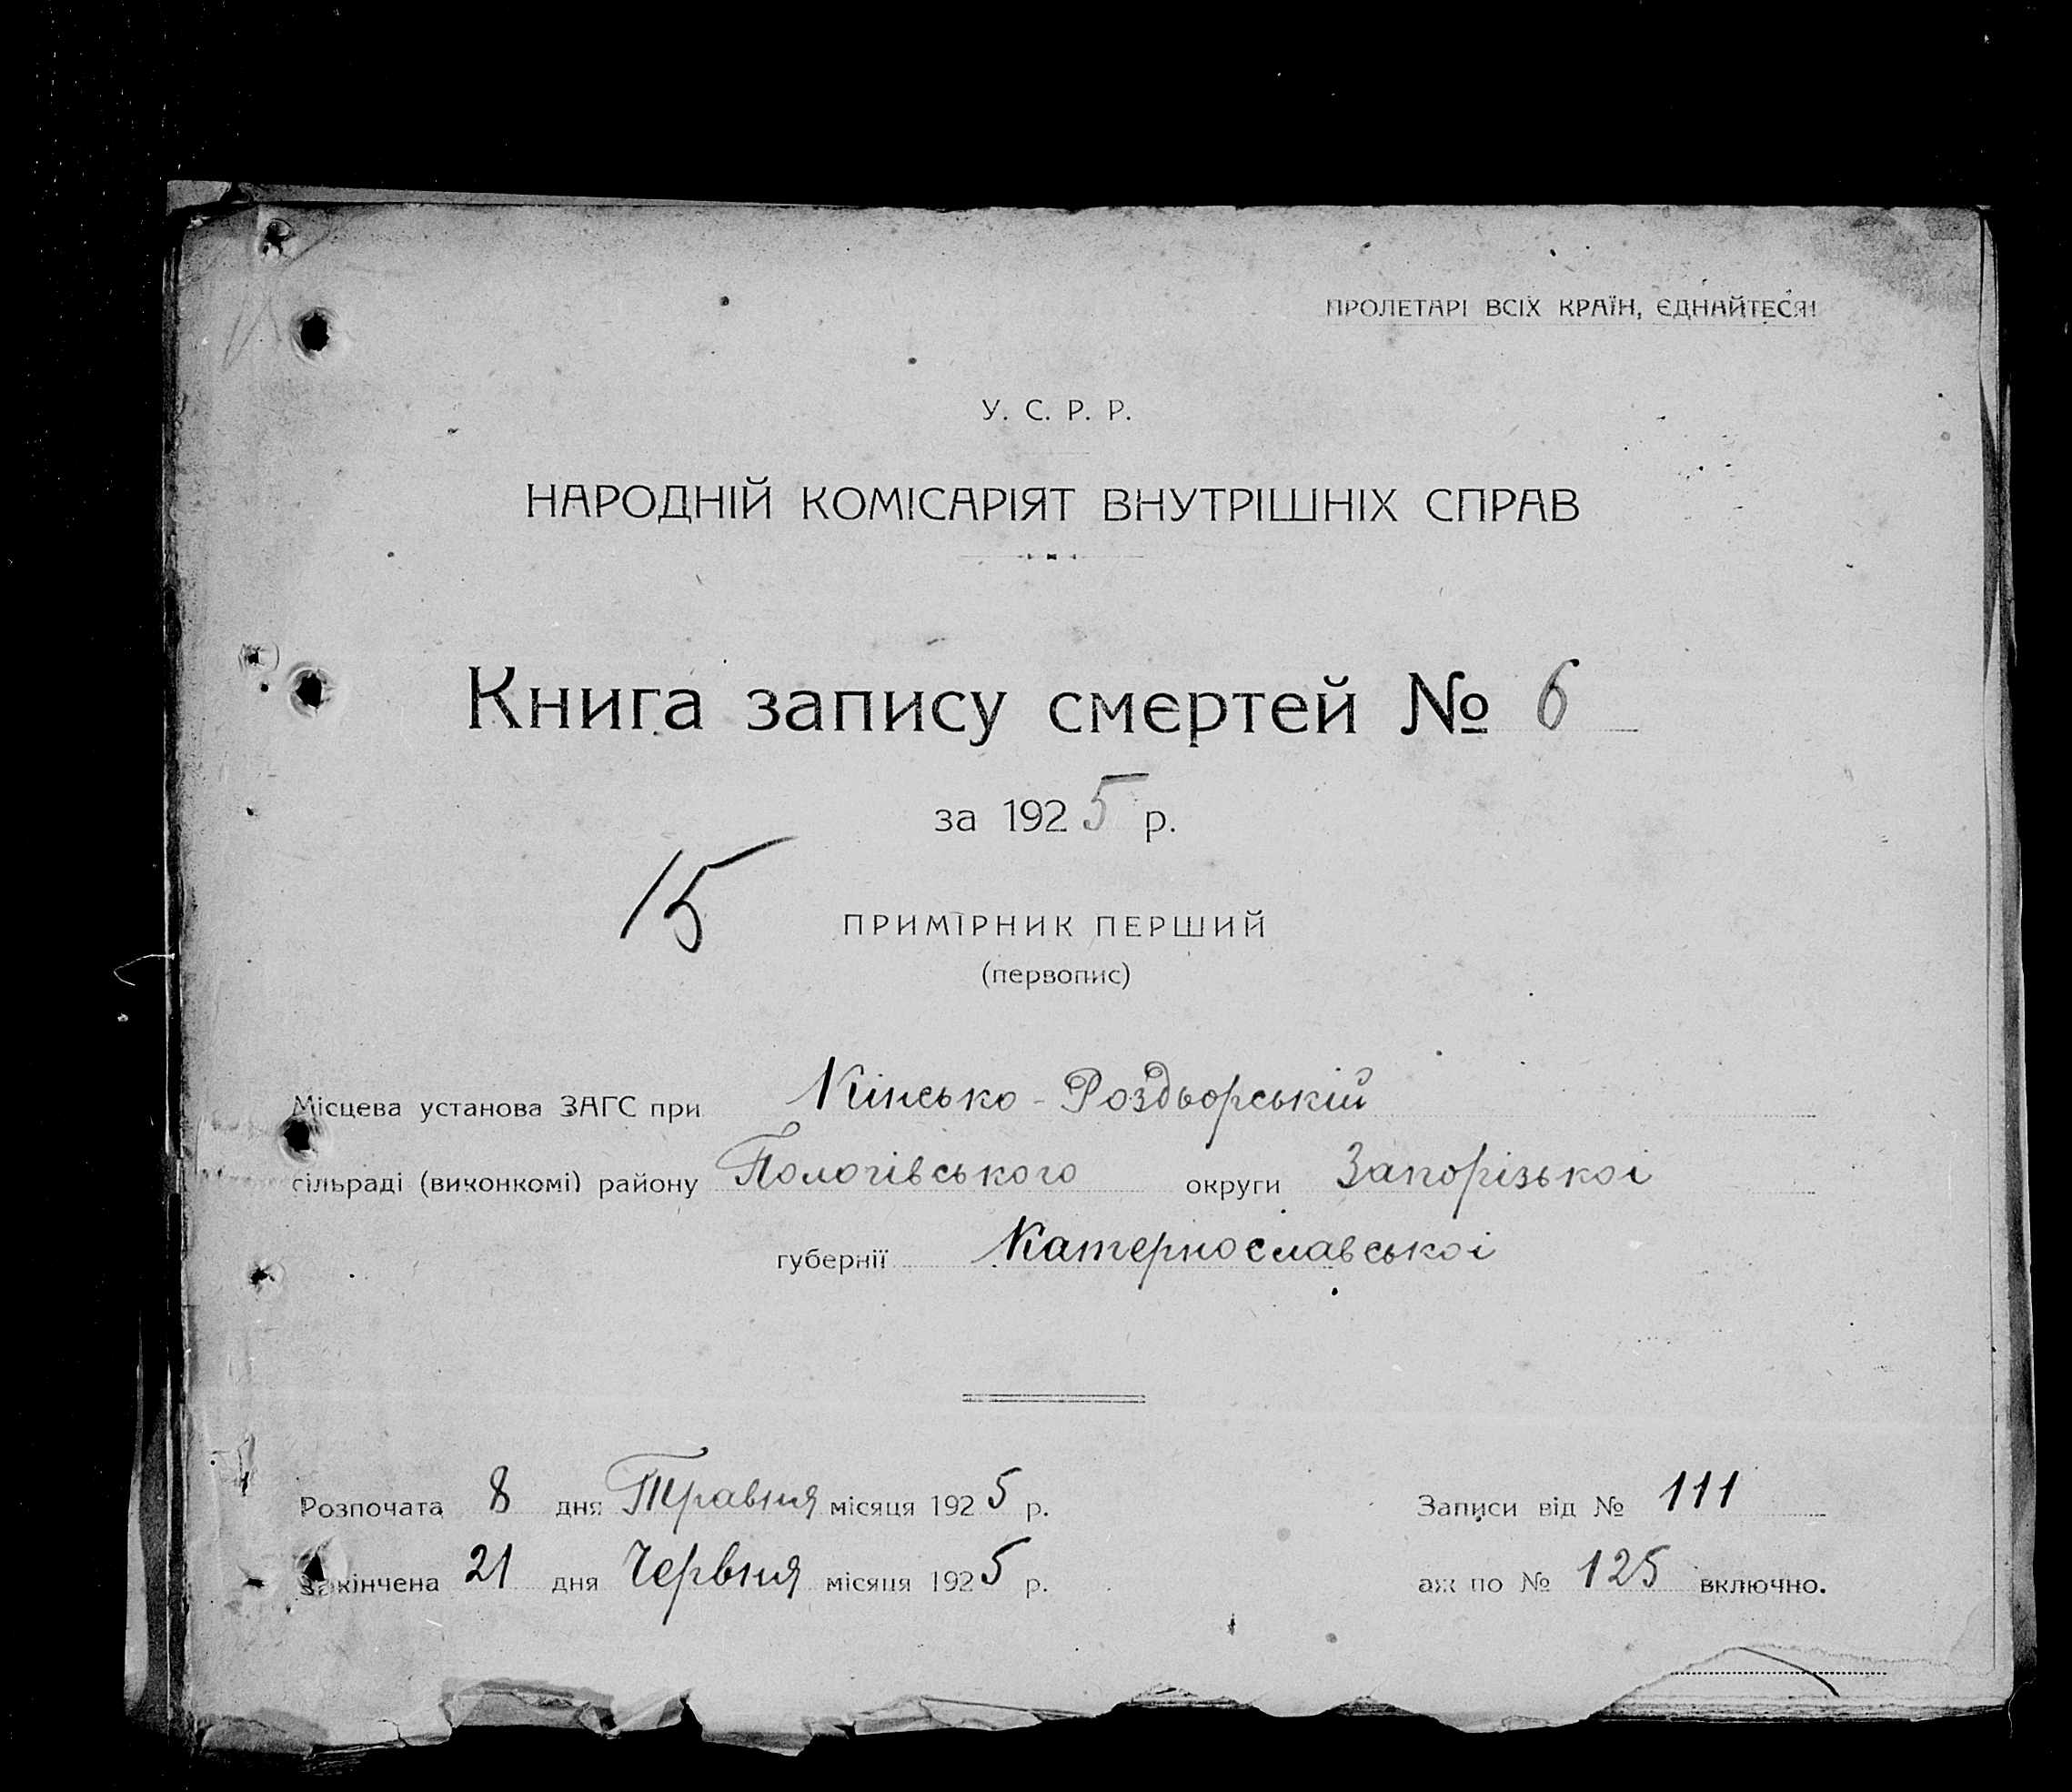 ПРОЛЕТАРІ ВСІХ КРАЇН, ЄДНАЙТЕСЯ!
У. С. Р. Р.
НАРОДНІЙ КОМІСАРІЯТ ВНУТРІШНІХ СПРАВ
Книга запису смертей № 6
за 1925 р.
15
ПРИМІРНИК ПЕРШИЙ
(первопис)
Місцева установа ЗАГС при Кінсько-Роздьорській
сільраді (виконкомі) району Пологівського округи Запорізькоі
губернії Катернославськоі
Розпочата 8 дня Травня місяця 1925 р. Записи від № 111
Закінчена 21 дня Червня місяця 1925 р. аж по № 125 включно.